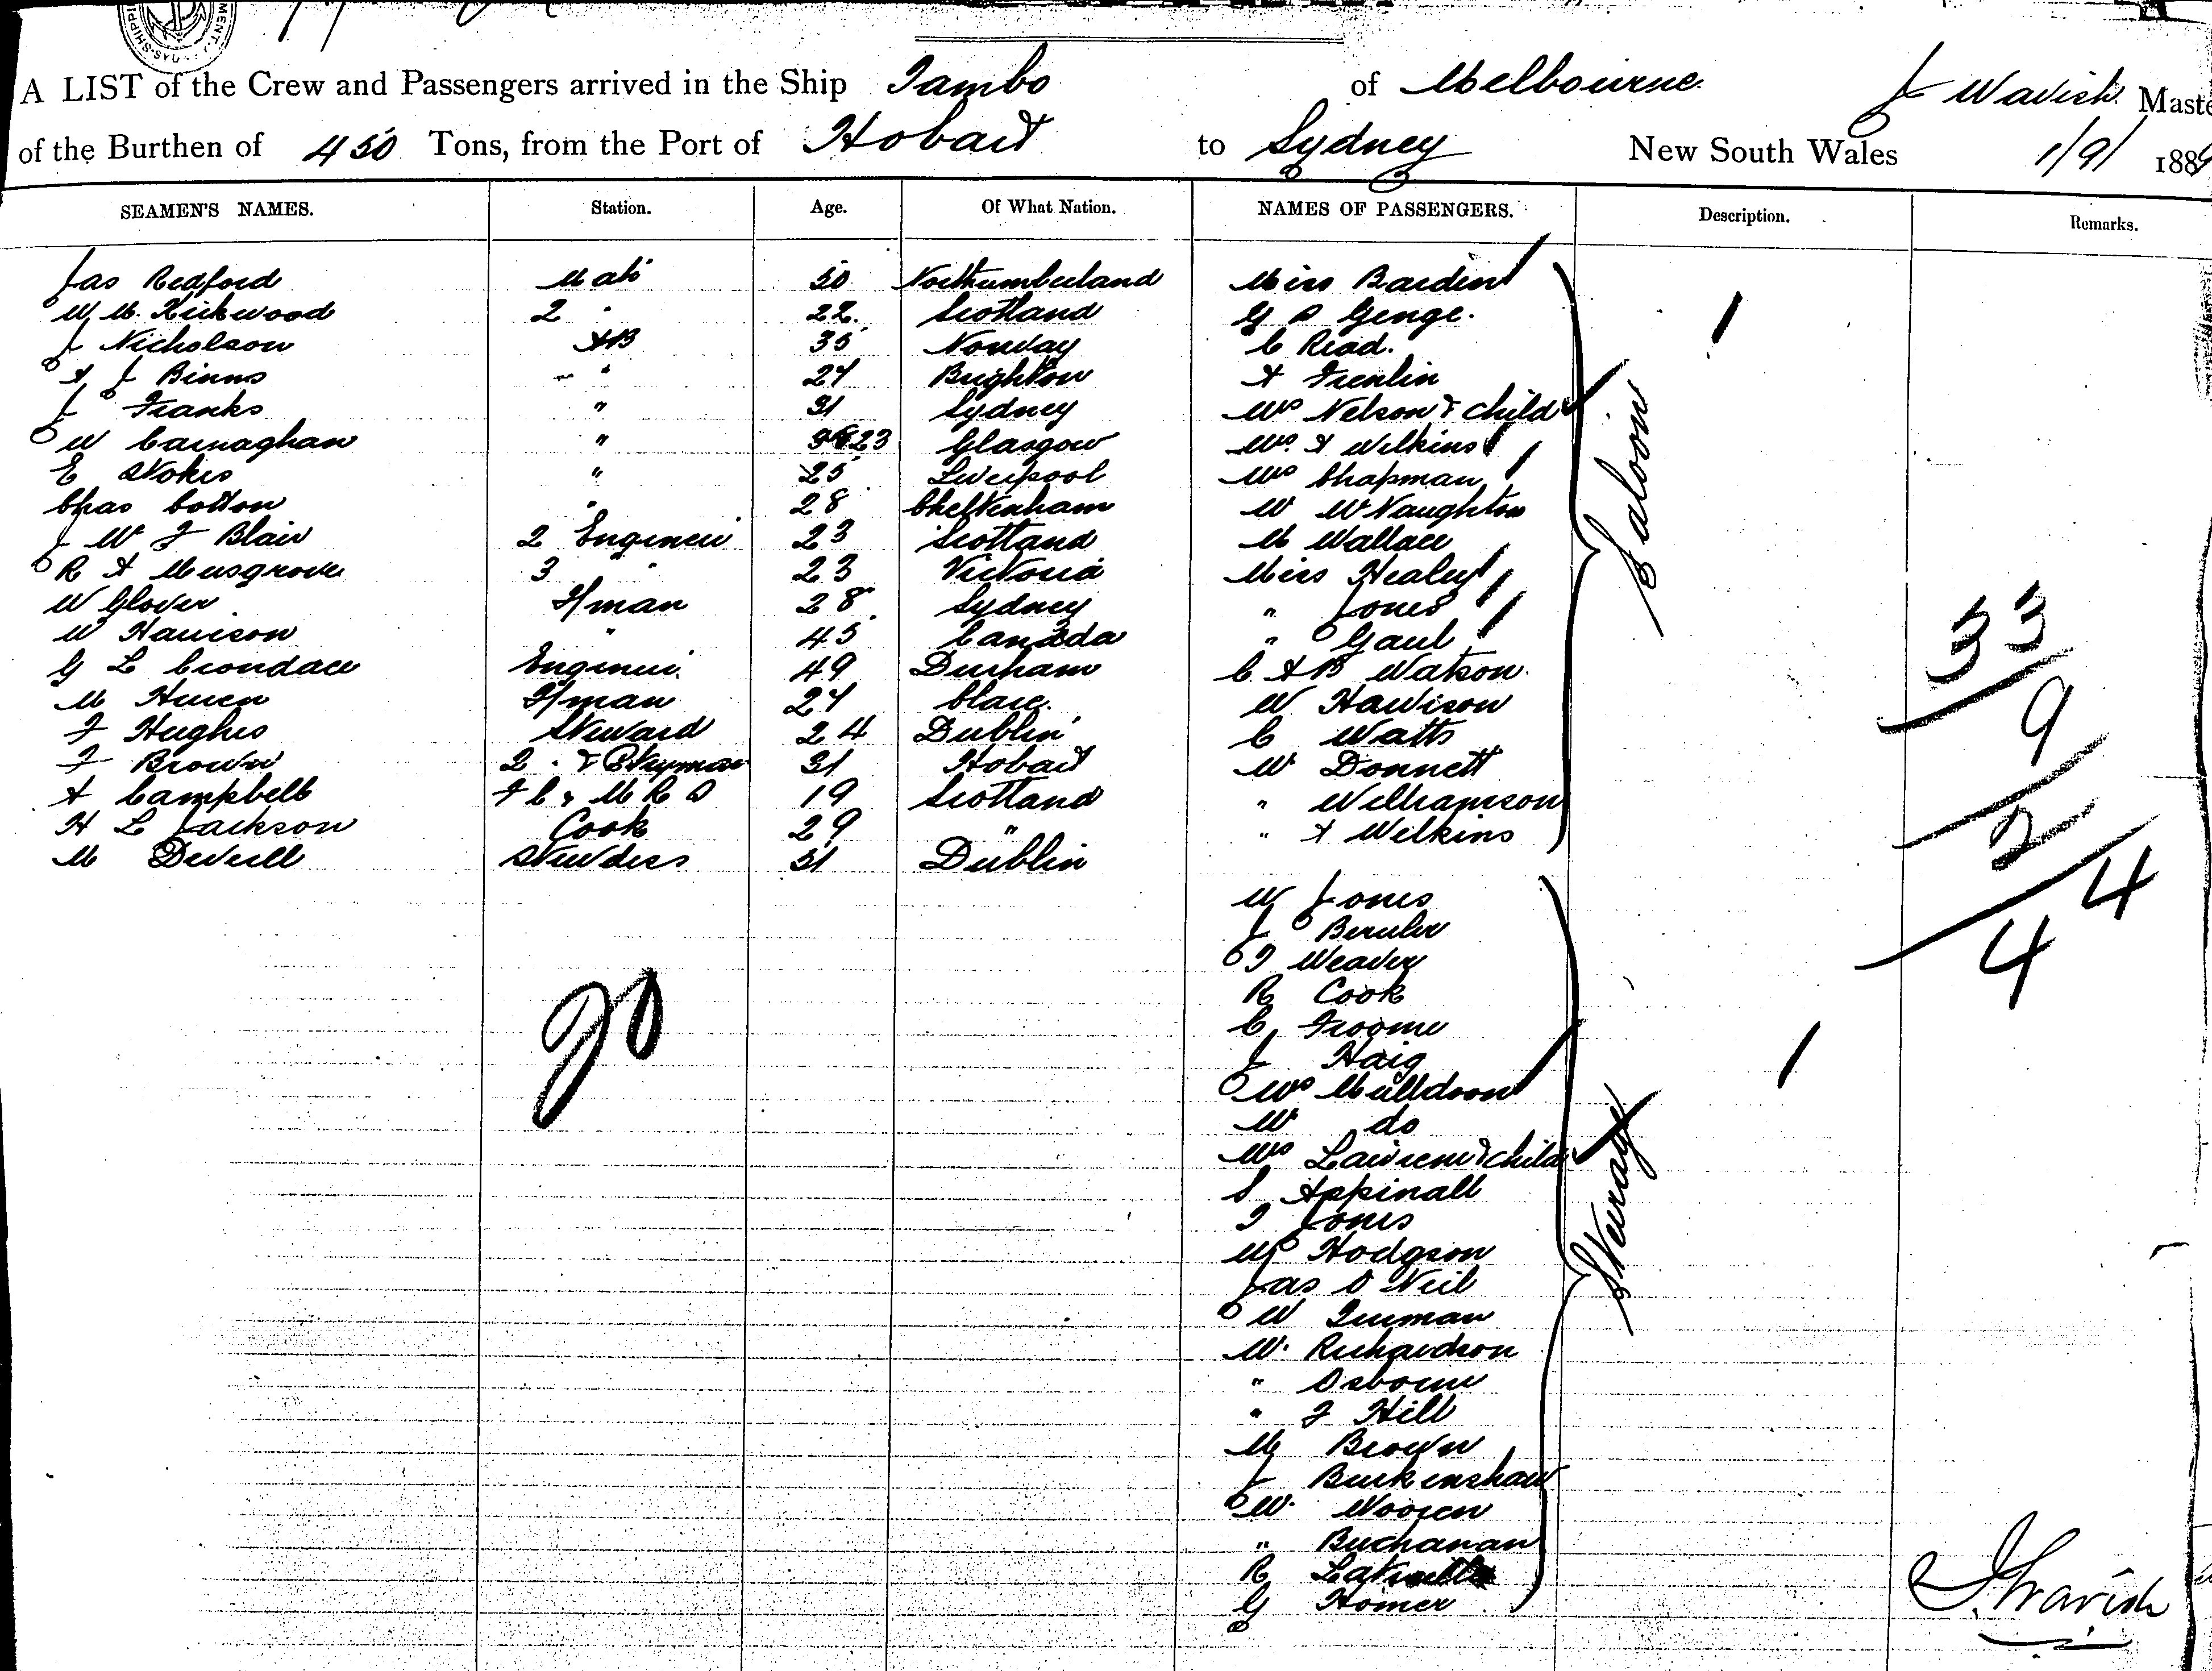 A LIST of the Crew and Passengers arrived in the Ship Tambo of Melbourne J Wavish Maste
of the Burthen of 450 Tons, from the Port of Hobart to Sydney New South Wales 1/9/ 1889
SEAMEN'S NAMES. Station. Age. Of What Nation. NAMES OF PASSENGERS. Description. Remarks.
Jas Redford Mate 50 Northumberland Miss Barden
W M Kirkwood 2 " 22 Scotland G P Genge.
J Nicholson AB 35 Norway C Read.
A J Binns " 27 Brighton A Tremlin
J Franks " 31 Sydney Mrs Nelson & child
W Carnaghan " 23 Glasgow Mrs A Wilkins
E Stokes " 25 Liverpool Mrs Chapman
Chas Cotton " 28 Cheltenham W W Naughton
J W F Blair 2 Engineer 23 Scotland M Wallace
R A Musgrove 3 " 23 Victoria Miss Healey
W Glover F/man 28 Sydney " Jones
W Harrison " 45 Canada " Gaul
G L Crondace Engineer. 49 Durham C A B Watson
M Hueen F/man 27 Clare. W Harrison
F Hughes Steward 24 Dublin C Watts
F Brown 2 " & 31 Hobart W Donnett
A Campbell 19 Scotland " Williamson
H L Jackson Cook 29 " " A Wilkins
M Deverell Stewdess 31 Dublin
Saloon
W Jones
J
T Weaver
R Cook
C Froome
J Haig
Mrs Mulldoon
W do
Mrs Lawrence & child
S Aspinall
T Jones
W Hodgson
Jas O Neil
W
W. Richardson
" Osborne
" F Hill
M Brown
J Burkenshaw
W. Wooren
" Buchanan
R
G Homer
Steerage
33
9
2
4
4
J. Wavish